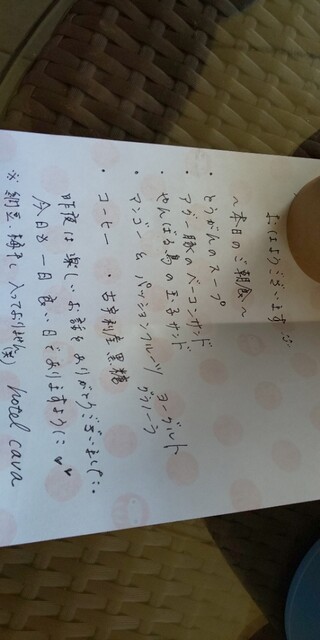 おはようございます
〜本日のご朝食〜
・とうがんのスープ
・アグー豚のベーコンサンド
・やんばる鳥の玉子サンド
・マンゴー & パッションフルーツ ヨーグルト グラノーラ
・コーヒー ・ 黒糖
昨夜は楽しいお話をありがとうございました。
今日も一日良い日でありますように♥♥
※納豆、梅干し入っておりません(笑) hotel cava